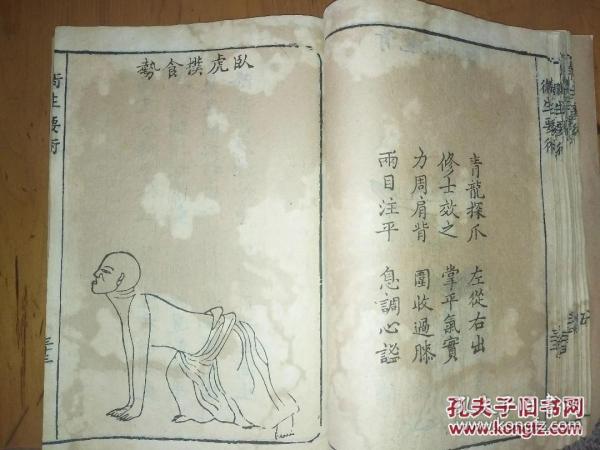 青龍探爪 左從右出
修士效之 掌平氣實
力周肩背 圍收過膝
兩目注平 息調心謐
臥虎撲食勢
衛生要術
衛生要術
孔夫子旧书网